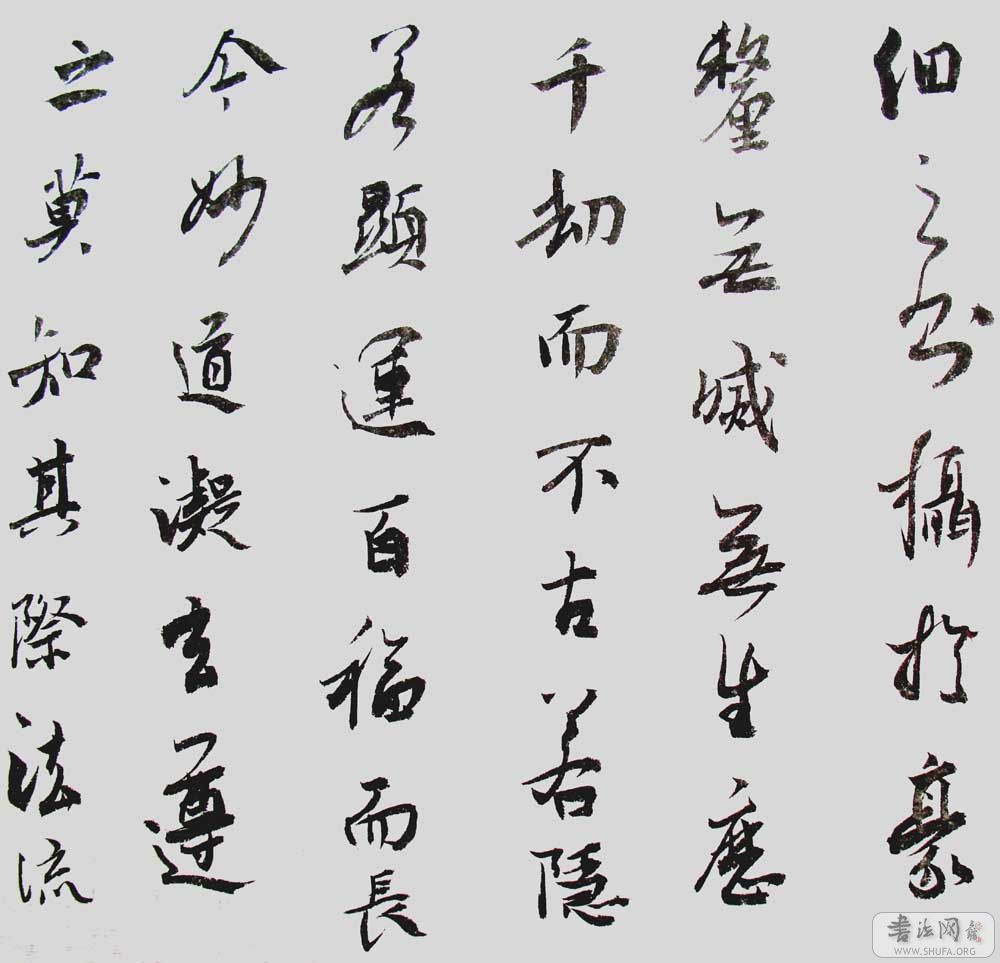 細之則攝於豪
釐無滅無生歷
千劫而不古若隱
若顯運百福而長
今妙道凝玄遵
之莫知其際法流
书法网
WWW.SHUFA.ORG